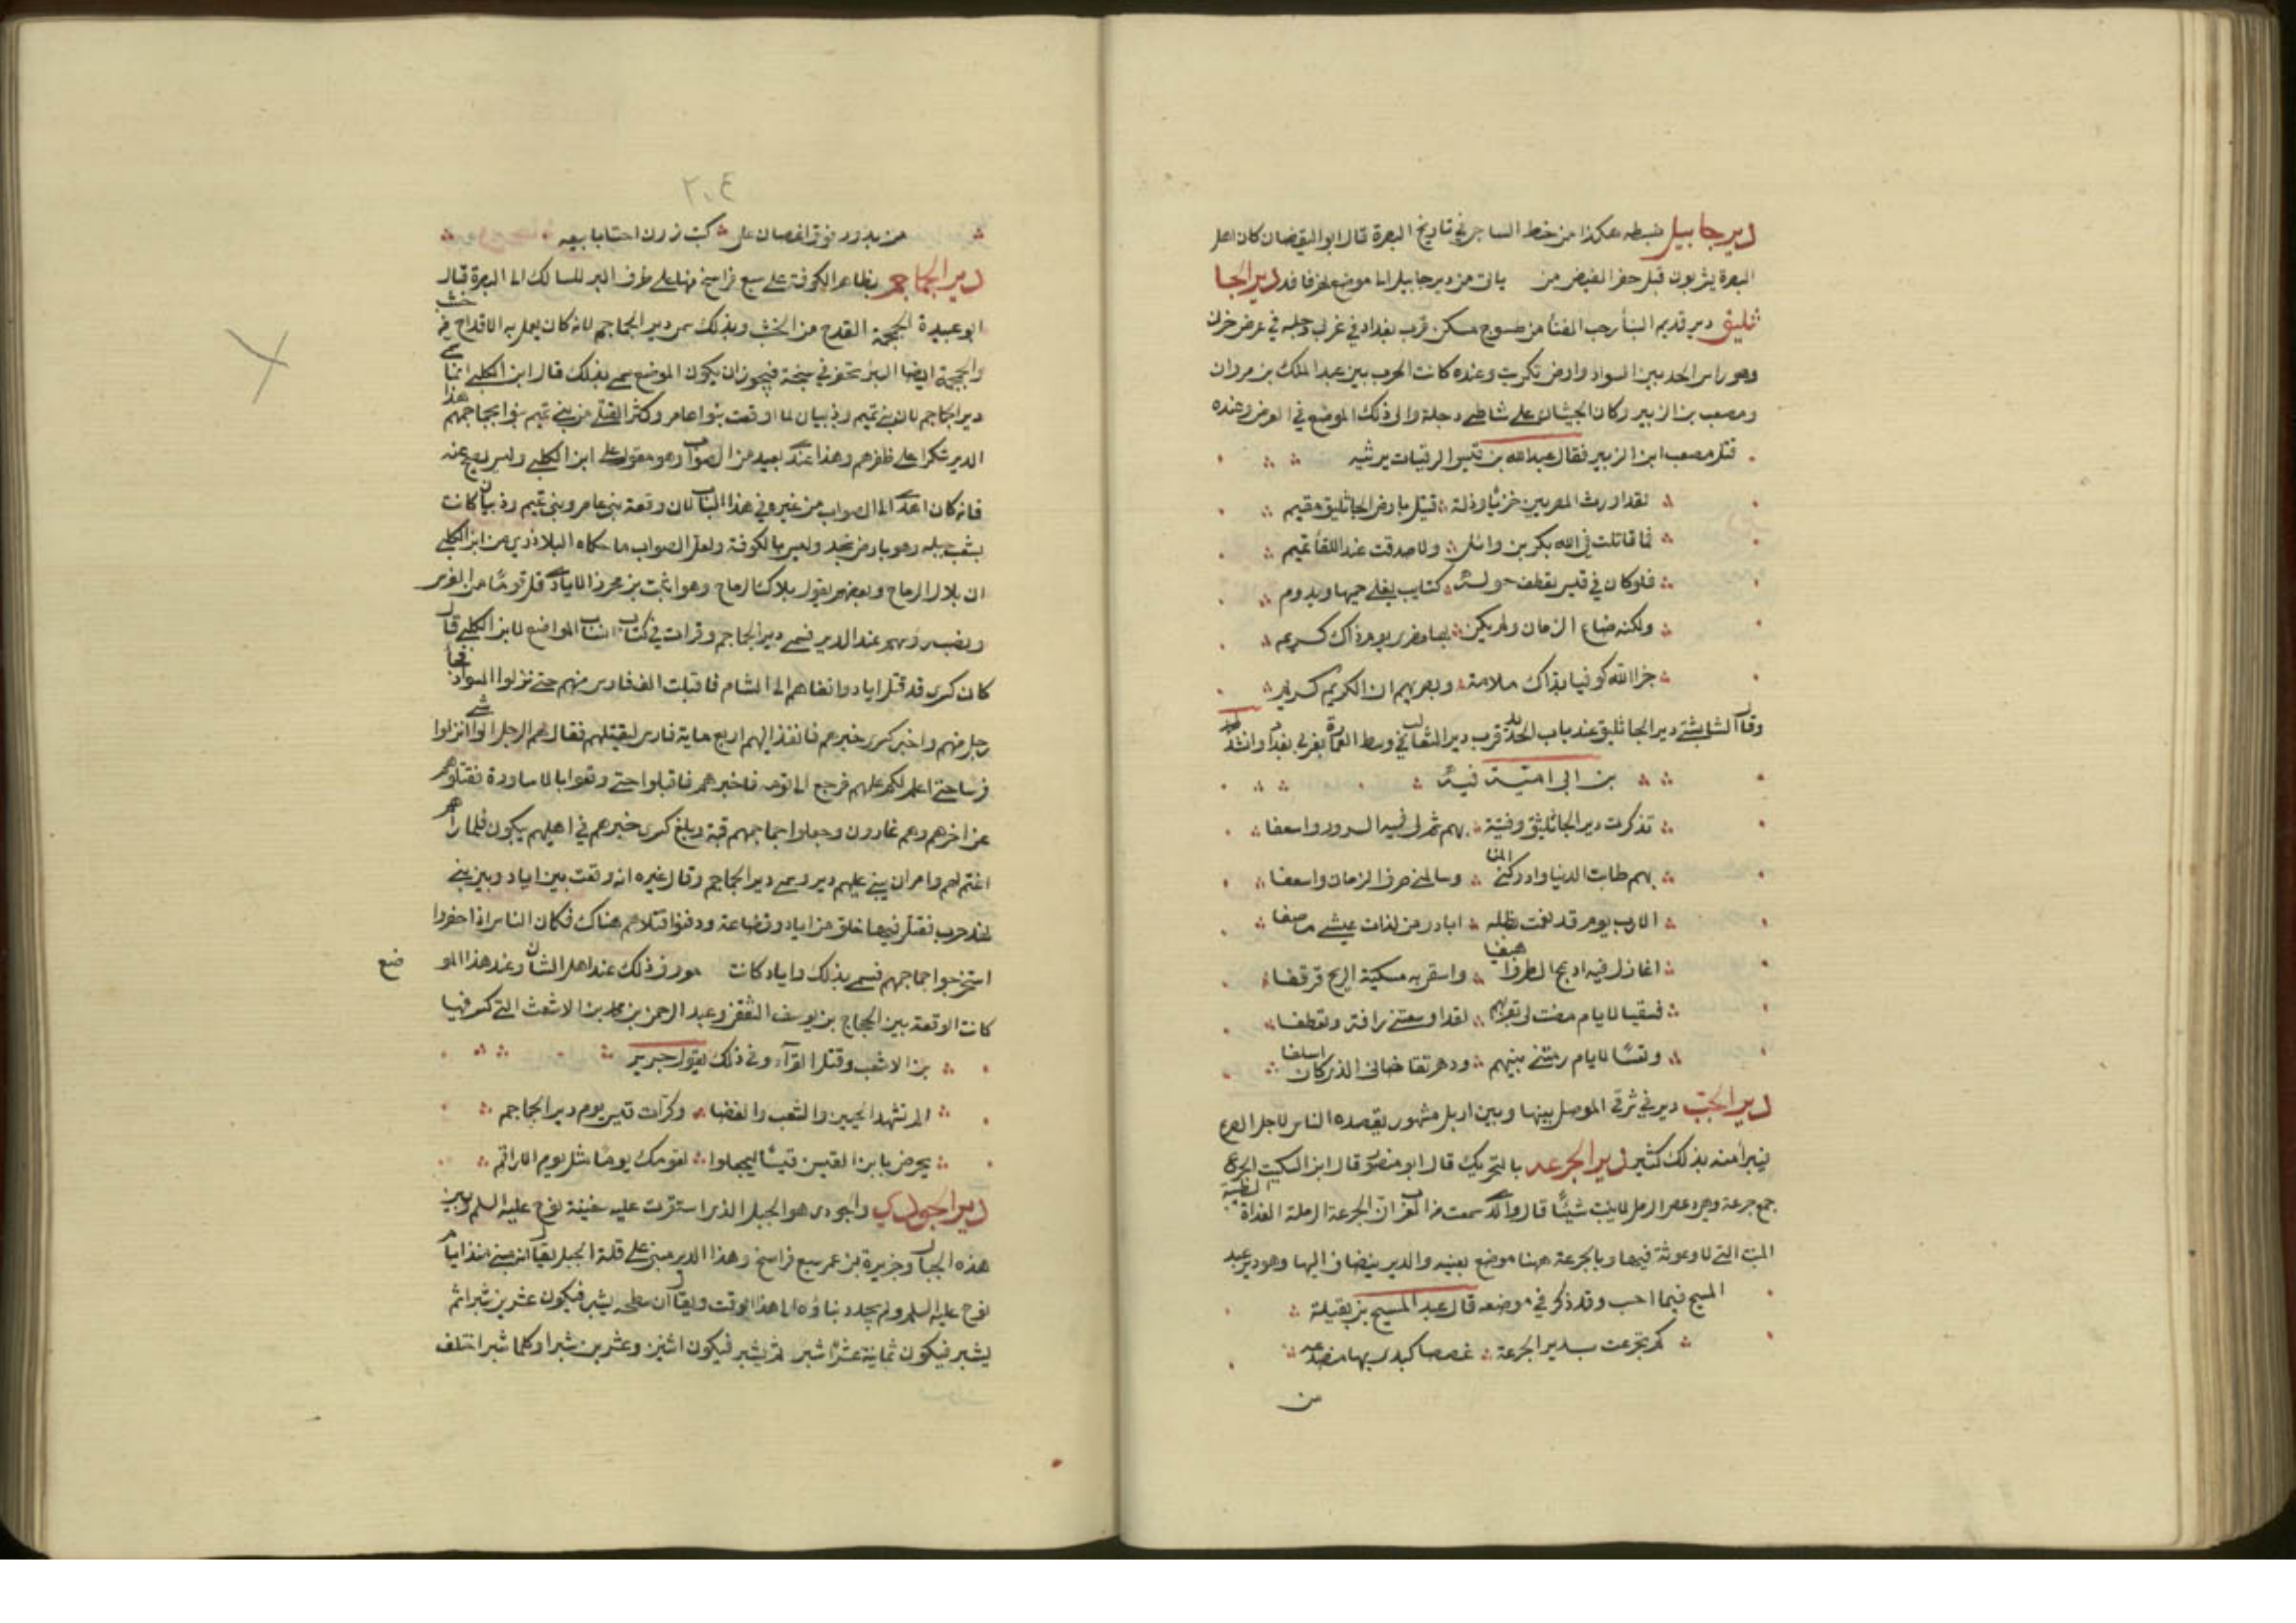 دير جابيل ضبطه هكذا من خط الساجي في تاريخ البصرة قال ابو اليقضان كان اهل
البصرة يشربون قبل حفر الفيض من يأتي من دير جابيل الى موضع نهر نافذ دير الجا
ثليق دير قديم البنا رحب الفنا من طسوج مسكن قرب بغداد في غربي دجلة في عرض حربي
وهو راس الحد بين السواد وارض تكريت وعنده كانت الحرب بين عبد الملك بن مروان
ومصعب بن الزبير وكان الجيشان على شاطي دجلة والى ذلك الموضع في العرض وعنده
قتل مصعب ابن الزبير فقال عبدالله بن قيس الرقيات يرثيه
لقد اورث المصرين خزيا وذلة قتيل بارض الجاثليق مقيم
فما قاتلت في الله بكر بن وائل ولا صدقت عند اللقا تميم
فلو كان في قيس تعطف حوله كتايب يغلي حميها ويدوم
ولكنه ضاع الزمان ولم يكن بها مضري يوم ذاك كريم
جزا الله كوفيا بذاك ملامة وبصريهم ان الكريم كريم
وقال الشابشتي دير الجاثليق عند باب الحديد قرب دير الثعالب في وسط العمارة بغربي بغداد وانشد لمحمد
بن ابي امية فيه
تذكرت دير الجاثليق وفتية بهم تم لي فيه السرور واسعفا
بهم طابت الدنيا وادركني المنا وسالمني صرف الزمان واسعفا
الا رب يوم قد نعمت بظله ابادر من لذات عيشي ما صفا
اغازل فيه ادعج الطرف اهيفا واسقى به مسكية الريح قرقفا
فسقيا لايام مضت لي بقربهم لقد اوسعتني رافة وتعطفا
وتعسا لايام رمتني ببينهم ودهر تقاضاني الذي كان اسلفا
دير الجب دير في شرقي الموصل بينها وبين اربل مشهور يقصده الناس لاجل الصرع
فيبرا منه بذلك كثير دير الجرعة بالتحريك قال ابو منصور قال ابن السكيت الجرع
جمع جرعة وهي دعص الرمل لا ينبت شيئا قال والذي سمعت من العرب ان الجرعة الرملة العذاة الطيبة
المنبت التي لا وعوثة فيها وبالجرعة ههنا موضع بعينه والدير ينضاف اليها وهو دير عبد
المسيح فيما احب وقد ذكر في موضعه قال عبد المسيح بن بقيلة
كم تجرعت بدير الجرعة غصصا كبدي بها منصدعه
من
٢٠٤
من بدور فوق اغصان على كثب زرن احتسابا بيعه
دير الجماجم بظاهر الكوفة على سبع فراسخ منها على طرف البر للسالك الى البصرة قال
ابو عبيدة الجمجمة القدح من الخشب وبذلك سمى دير الجماجم لانه كان يعمل به الاقداح من خشب
والجمجمة ايضا البئر تحفر في سبخة فيجوز ان يكون الموضع سمي بذلك قال ابن الكلبي انما سمي
دير الجماجم لان بني تميم وذبيان لما اوقعت بنوا عامر وكثر القتلى من بني تميم بنوا بجماجمهم هذا
الدير شكرا على ظفرهم وهذا عندي بعيد من الصواب وهو مقول على ابن الكلبي وليس يصح عنه
فانه كان اهدى الى الصواب من غيره في هذا الباب لان وقعة بني عامر وبني تميم وذبيان كانت
بشعب جبله وهو بارض نجد وليس بالكوفة ولعل الصواب ما حكاه البلاذري عن ابن الكلبي
ان بلال الرماح وبعضهم يقول بلاك الرماح وهو اثبت بن محرز الايادي قتل قوما من الفرس
ونصب روسهم عند الدير فسمي دير الجماجم وقرات في كتاب انساب المواضع لابن الكلبي قال
كان كسرى قد قتل اياد ونفاهم الى الشام فاقبلت الف فارس منهم حتى نزلوا السواد فجا
رجل منهم واخبر كسرى بخبرهم فانفذ اليهم اربع ماية فارس ليقتلهم فقال لهم الرجل الواشي انزلوا
فرسا حتى اعلم لكم علمهم فرجع الى قومه فاخبرهم فاقبلوا حتى وقعوا بالاساورة فقتلوهم
عن اخرهم وهم غادرون وجعلوا جماجمهم قبة وبلغ كسرى خبرهم في اهليهم يبكون فلما راهم
اغتم لهم وامر ان يبنى عليهم دير وسمي دير الجماجم وقال غيره انه وقعت بين اياد وبين بني
نهد حرب فقتل فيها خلق من اياد وقضاعة ودفنوا قتلاهم هناك فكان الناس اذا حفروا
استخرجوا جماجمهم فسمي بذلك واياد كانت عند اهل الشان وعند هذا المو ضع
كانت الوقعة بين الحجاج بن يوسف الثقفي وعبد الرحمن بن محمد بن الاشعث التي كسر فيها
بن الاشعب وقتل القرآء وفي ذلك يقول جرير
الم تشهد الجونين والشعب والغضا وكرات قيس يوم دير الجماجم
يحرض يا بن القين قيسا ليجعلوا لقومك يوما مثل يوم الاراقم
دير الجودي والجودى هو الجبل الذي استقرت عليه سفينة نوح عليه السلم وبين
هذه الجبال وجزيرة بن عمر سبع فراسخ وهذا الدير مبنى على قلة الجبل يقال انه مبني منذ ايام
نوح عليه السلم ولم يجدد بناؤه الى هذا الوقت ويقال ان سطحه يشبر فيكون عشرين شبرا ثم
يشبر فيكون ثمانية عشر شبر ثم يشبر فيكون اثنين وعشرين شبرا وكلما شبر اختلف